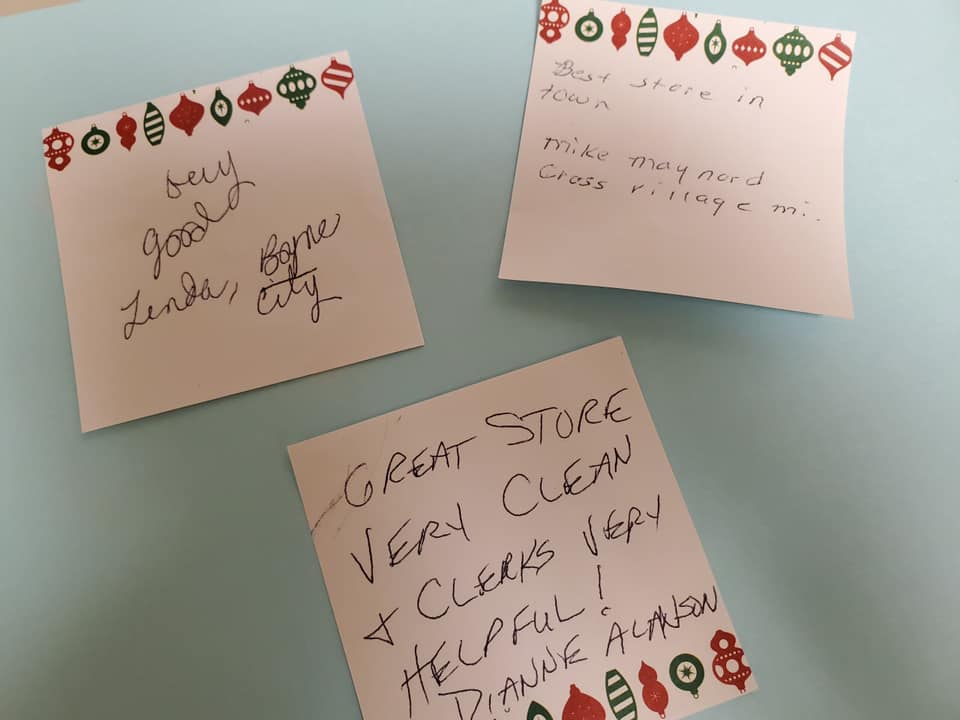 very
good
Linda, Boyne
City
Best store in
town
mike maynard
Cross village mi.
GREAT STORE
VERY CLEAN
+ CLERKS VERY
HELPFUL!
DIANNE ALANSON